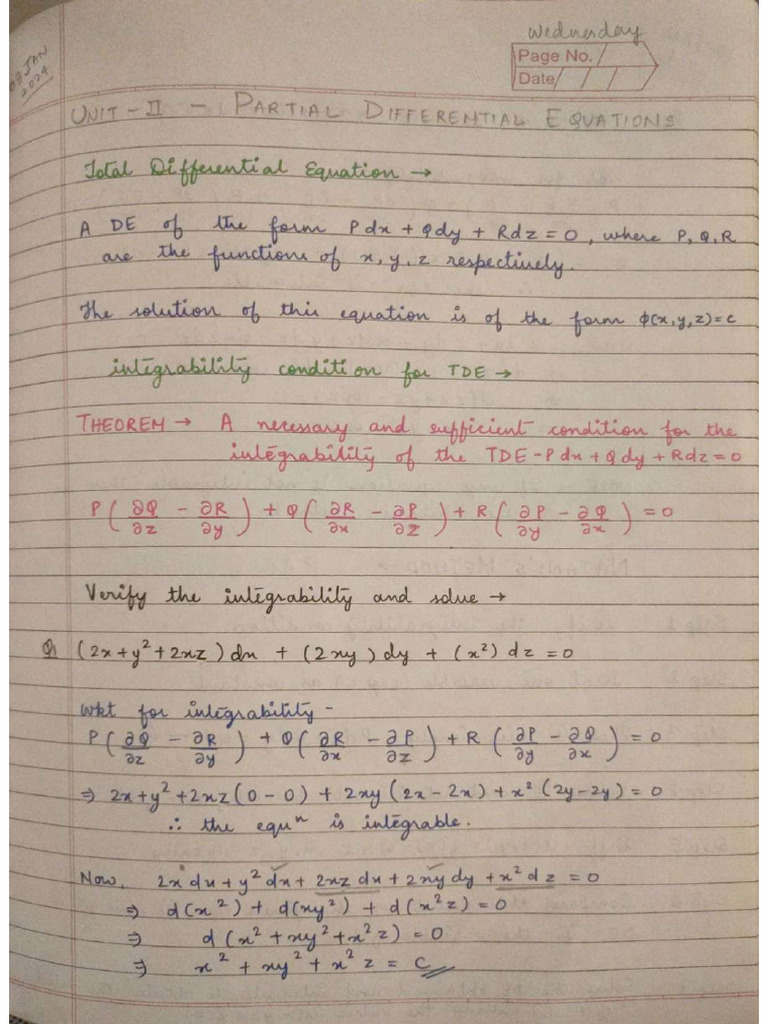 Wednesday
03 JAN
2024
Page No.
Date
UNIT-II - PARTIAL DIFFERENTIAL EQUATIONS
Total Differential Equation →
A DE of the form Pdx + Qdy + Rdz = 0, where P, Q, R
are the functions of x, y, z respectively.
The solution of this equation is of the form ϕ(x,y,z)=c
integrability condition for TDE →
THEOREM → A necessary and sufficient condition for the
integrability of the TDE - Pdx + Qdy + Rdz = 0
P(∂Q/∂z - ∂R/∂y) + Q(∂R/∂x - ∂P/∂z) + R(∂P/∂y - ∂Q/∂x) = 0
Verify the integrability and solve →
Q (2x+y²+2xz)dx + (2xy)dy + (x²)dz = 0
Wkt for integrability -
P(∂Q/∂z - ∂R/∂y) + Q(∂R/∂x - ∂P/∂z) + R(∂P/∂y - ∂Q/∂x) = 0
⇒ 2x+y²+2xz(0-0) + 2xy(2x-2x) + x²(2y-2y) = 0
∴ the equⁿ is integrable.
Now, 2xdx + y²dx + 2xzdx + 2xydy + x²dz = 0
⇒ d(x²) + d(xy²) + d(x²z) = 0
⇒ d(x² + xy² + x²z) = 0
⇒ x² + xy² + x²z = C